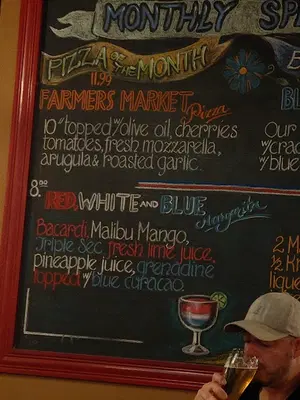 MONTHLY SP
PIZZA OF THE MONTH
11.99
FARMERS MARKET Pizza
10" topped w/ olive oil, cherries
tomatoes, fresh mozzarella,
arugula & roasted garlic.
8.00
RED, WHITE AND BLUE
Margarita
Bacardi, Malibu Mango,
Triple Sec, fresh lime juice,
pineapple juice, grenadine
topped w/ blue curacao.
BL
Our
w/crac
w/blue
2 M
1/2
lique